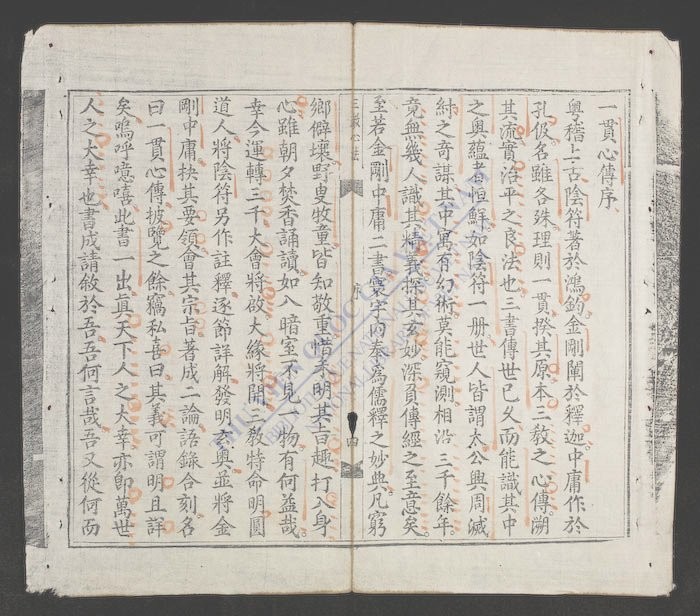 一貫心傳序
粵稽上古陰符著於鴻鈞金剛闡於釋迦中庸作於
孔伋名雖各殊理則一貫揆其原本三敎之心傳溯
其流實治平之良法也三書傳世已久而能識其中
之奧蘊者恒鮮如陰符一册世人皆謂太公興周滅
紂之奇謀其中寓有幻術莫能窺測相沿三千餘年
竟無幾人識其精義探其玄妙深負傳經之至意矣
至若金剛中庸二書寰宇內奉爲儒釋之妙典凡窮
三教心法
序
四
鄉僻壤野叟牧童皆知敬重惜未明其旨趣打入身
心雖朝夕焚香誦讀如入暗室不見一物有何益哉
幸今運轉三千大會將啟大緣將開三敎特命明圓
道人將陰符另作註釋逐節詳解發明玄奧並將金
剛中庸抉其要領會其宗旨著成一論語錄合刻名
曰一貫心傳披覽之餘竊私喜曰其義可謂明且詳
矣嗚呼噫嘻此書一出眞天下人之大幸亦卽萬世
人之大幸也書成請敘於吾吾何言哉吾又從何而